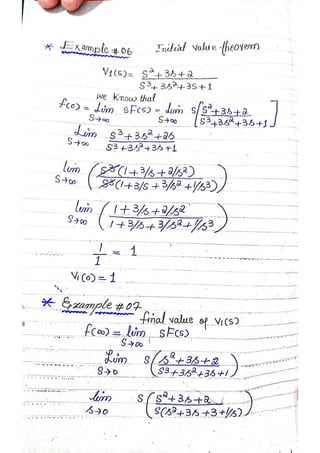 * Example #06 Initial value theorem
V₁(s) = s²+3s+2
s³+3s²+3s+1
we know that
f(o) = Lim sF(s) = Lim s[s²+3s+2
s→∞ s→∞ s³+3s²+3s+1]
Lim s³+3s²+2s
s→∞ s³+3s²+3s+1
lim ( s³(1+3/s+2/s²)
s→∞ s³(1+3/s+3/s²+1/s³) )
lim ( 1+3/s+2/s²
s→∞ 1+3/s+3/s²+1/s³ )
1 = 1
1
V₁(o) = 1
* Example #07
final value of V₁(s)
f(∞) = lim sF(s)
s→∞
Lim s ( s²+3s+2
s→o s³+3s²+3s+1 )
lim s ( s²+3s+2
s→o s(s²+3s+3+1/s) )